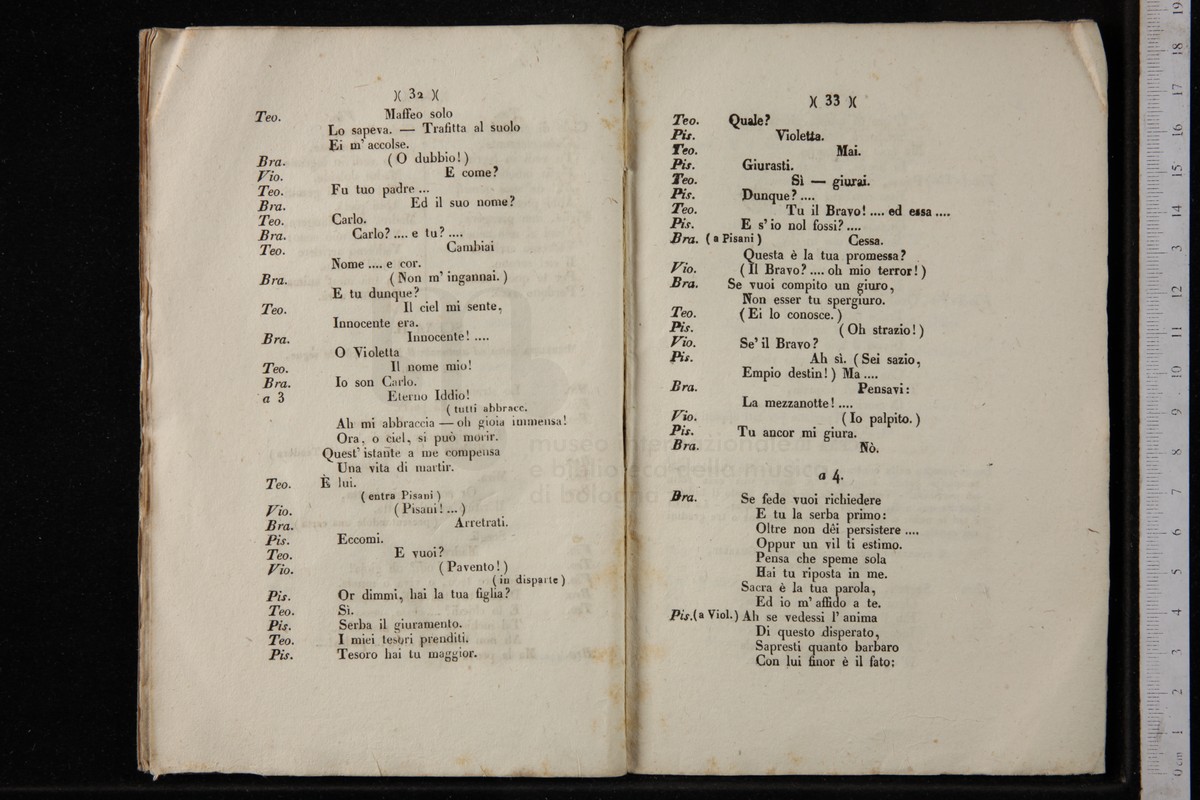 )( 32 )(
Teo. Maffeo solo
Lo sapeva. — Trafitta al suolo
Ei m' accolse.
Bra. ( O dubbio! )
Vio. E come?
Teo. Fu tuo padre ...
Bra. Ed il suo nome?
Teo. Carlo.
Bra. Carlo? .... e tu? ....
Teo. Cambiai
Nome .... e cor.
Bra. ( Non m' ingannai. )
E tu dunque?
Teo. Il ciel mi sente,
Innocente era.
Bra. Innocente! ....
O Violetta
Teo. Il nome mio!
Bra. Io son Carlo.
a 3 Eterno Iddio!
( tutti abbracc.
Ah mi abbraccia — oh gioia immensa!
Ora, o ciel, si può morir.
Quest' istante a me compensa
Una vita di martir.
Teo. È lui.
( entra Pisani )
Vio. ( Pisani! ... )
Bra. Arretrati.
Pis. Eccomi.
Teo. E vuoi?
Vio. ( Pavento! )
( in disparte )
Pis. Or dimmi, hai la tua figlia?
Teo. Sì.
Pis. Serba il giuramento.
Teo. I miei tesori prenditi.
Pis. Tesoro hai tu maggior.
)( 33 )(
Teo. Quale?
Pis. Violetta.
Teo. Mai.
Pis. Giurasti.
Teo. Sì — giurai.
Pis. Dunque? ....
Teo. Tu il Bravo! .... ed essa ....
Pis. E s' io nol fossi? ....
Bra. ( a Pisani ) Cessa.
Questa è la tua promessa?
Vio. ( Il Bravo? .... oh mio terror! )
Bra. Se vuoi compito un giuro,
Non esser tu spergiuro.
Teo. ( Ei lo conosce. )
Pis. ( Oh strazio! )
Vio. Se' il Bravo?
Pis. Ah sì. ( Sei sazio,
Empio destin! ) Ma ....
Bra. Pensavi:
La mezzanotte! ....
Vio. ( Io palpito. )
Pis. Tu ancor mi giura.
Bra. Nò.
a 4.
Bra. Se fede vuoi richiedere
E tu la serba primo:
Oltre non dèi persistere ....
Oppur un vil ti estimo.
Pensa che speme sola
Hai tu riposta in me.
Sacra è la tua parola,
Ed io m' affido a te.
Pis. (a Viol.) Ah se vedessi l' anima
Di questo disperato,
Sapresti quanto barbaro
Con lui finor è il fato:
museo internazionale
e biblioteca della musica
di bologna